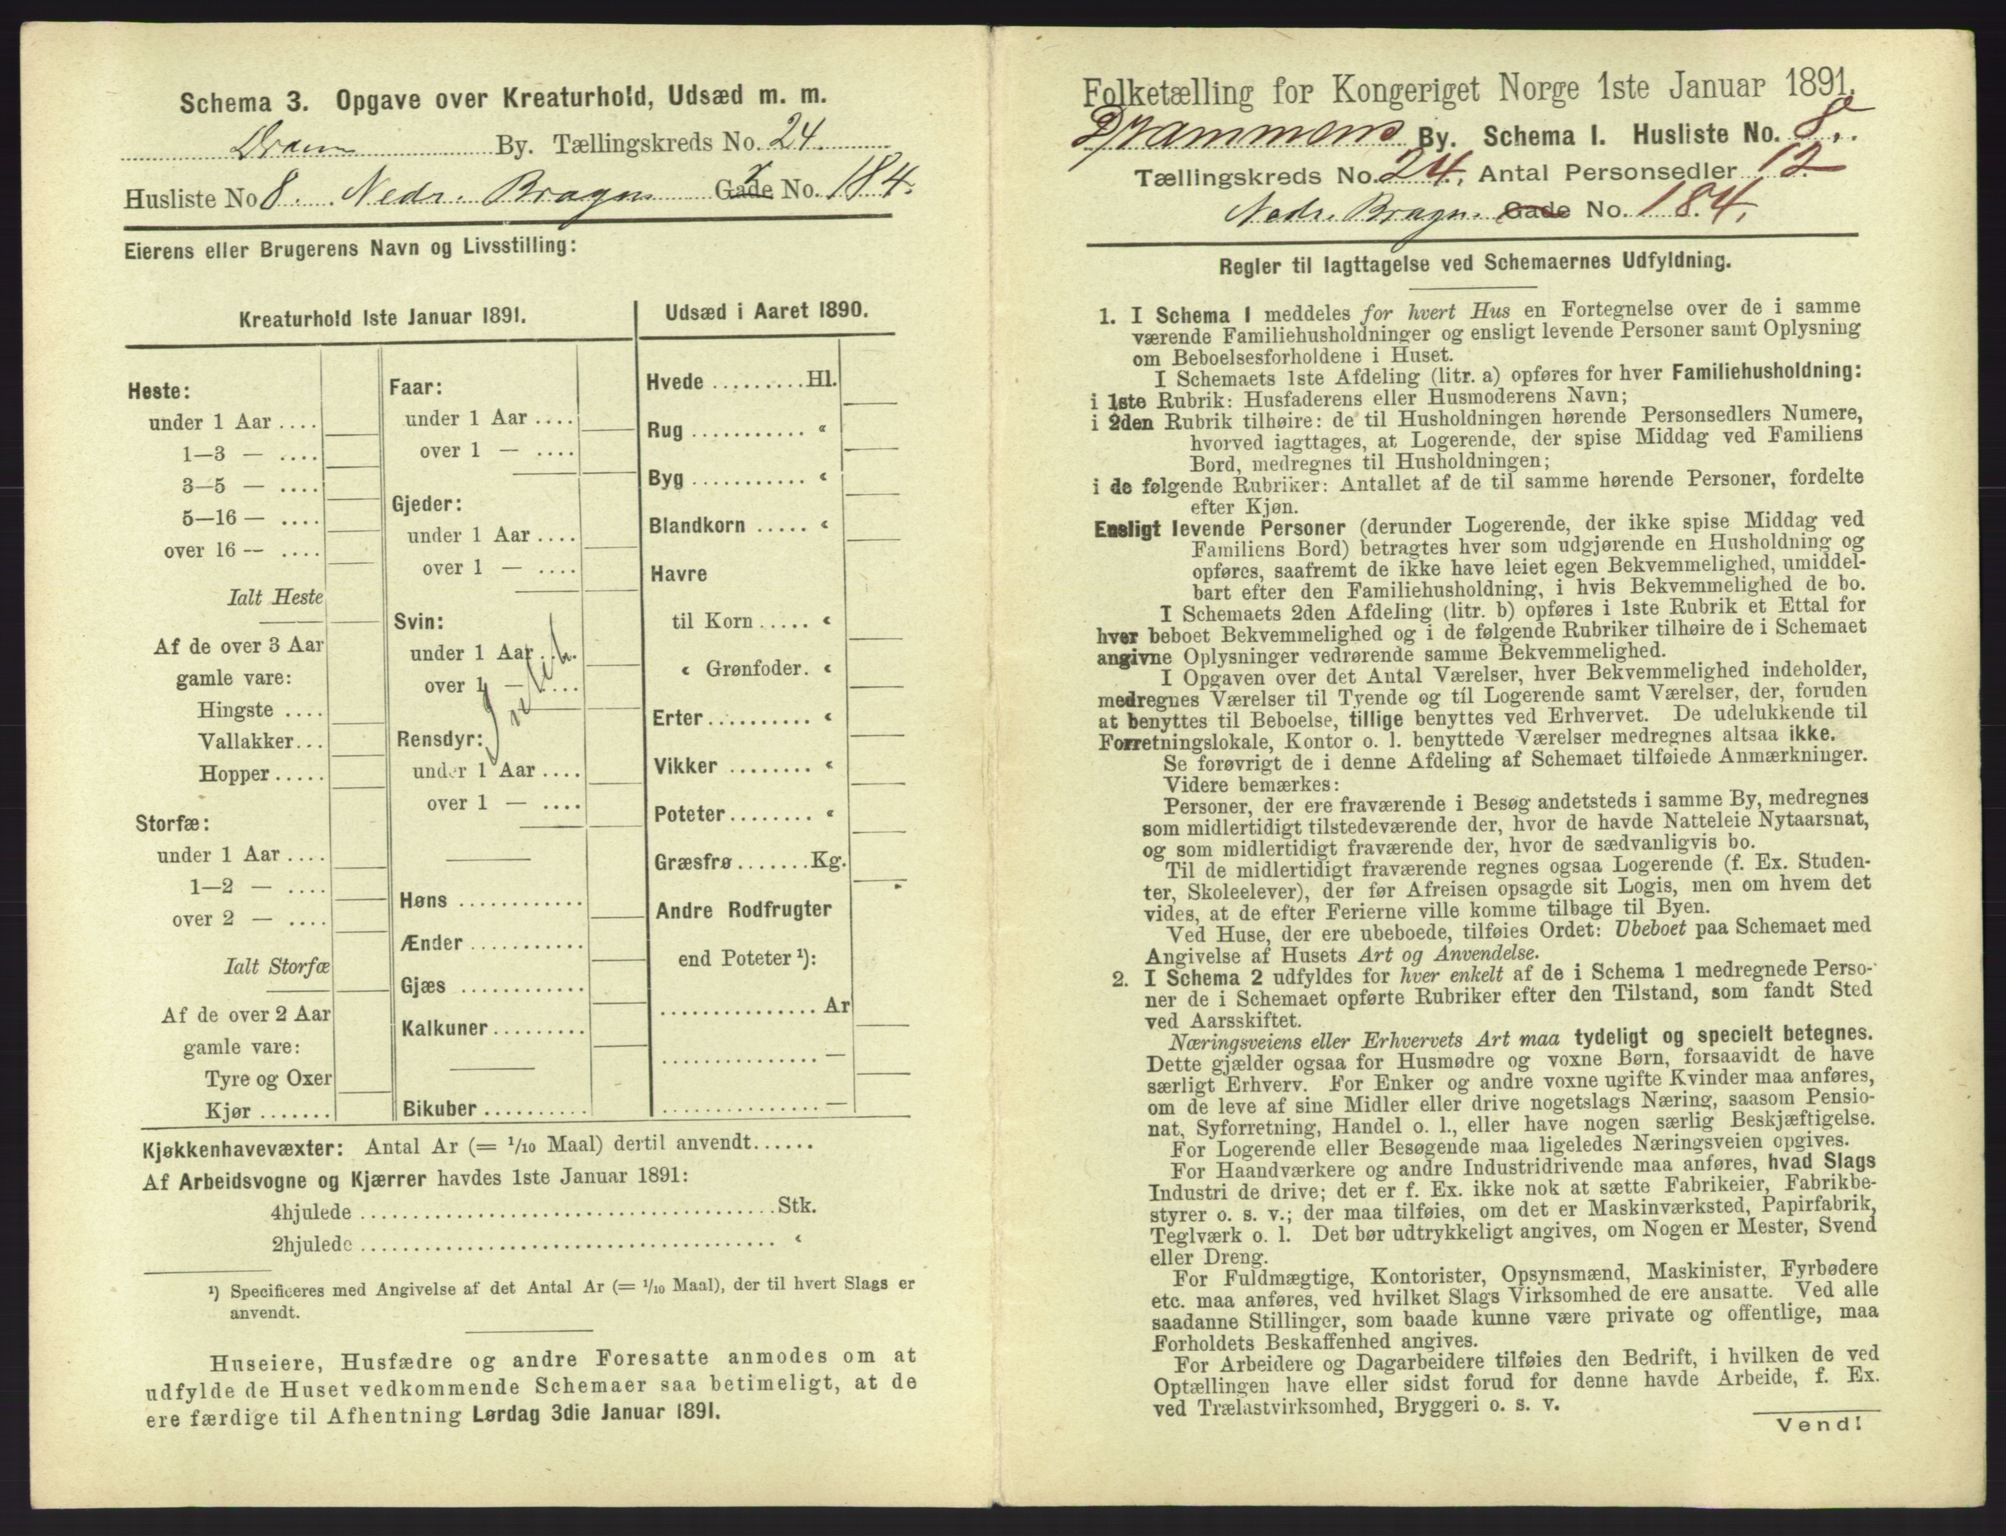 Schema 3. Opgave over Kreaturhold, Udsæd m. m.
Dram By. Tællingskreds No. 24
Husliste No 8. Nedr. Bragn Gade No. 184.
Eierens eller Brugerens Navn og Livsstilling:
Kreaturhold 1ste Januar 1891.
Heste:
under 1 Aar ....
1—3 — ....
3—5 — ....
5—16 — ....
over 16 — ....
Ialt Heste
Af de over 3 Aar
gamle vare:
Hingste ....
Vallakker...
Hopper.....
Storfæ:
under 1 Aar ....
1—2 — ....
over 2 — ....
Ialt Storfæ
Af de over 2 Aar
gamle vare:
Tyre og Oxer
Kjør .......
Faar:
under 1 Aar ....
over 1 — ....
Gjeder:
under 1 Aar ....
over 1 — ....
Svin:
under 1 Aar ....
over 1 — ....
Rensdyr:
under 1 Aar ....
over 1 — ....
Høns ............
Ænder ...........
Gjæs ............
Kalkuner.........
Bikuber..........
Udsæd i Aaret 1890.
Hvede .........Hl.
Rug ........... "
Byg ........... "
Blandkorn ..... "
Havre
til Korn ..... "
" Grønfoder. "
Erter.......... "
Vikker ........ "
Poteter........ "
Græsfrø .......Kg.
Andre Rodfrugter
end Poteter ¹):
............... Ar
............... —
............... —
Kjøkkenhavevæxter: Antal Ar (= 1/10 Maal) dertil anvendt......
Af Arbeidsvogne og Kjærrer havdes 1ste Januar 1891:
4hjulede ........................................Stk.
2hjulede ........................................ "
¹) Specificeres med Angivelse af det Antal Ar (= 1/10 Maal), der til hvert Slags er
anvendt.
Huseiere, Husfædre og andre Foresatte anmodes om at
udfylde de Huset vedkommende Schemaer saa betimeligt, at de
ere færdige til Afhentning Lørdag 3die Januar 1891.
Folketælling for Kongeriget Norge 1ste Januar 1891.
Drammens By. Schema I. Husliste No. 8.
Tællingskreds No. 24. Antal Personsedler 12
Nedr. Bragn. Gade No. 184.
Regler til Iagttagelse ved Schemaernes Udfyldning.
1. I Schema 1 meddeles for hvert Hus en Fortegnelse over de i samme
værende Familiehusholdninger og ensligt levende Personer samt Oplysning
om Beboelsesforholdene i Huset.
I Schemaets 1ste Afdeling (litr. a) opføres for hver Familiehusholdning:
i 1ste Rubrik: Husfaderens eller Husmoderens Navn;
i 2den Rubrik tilhøire: de til Husholdningen hørende Personsedlers Numere,
hvorved iagttages, at Logerende, der spise Middag ved Familiens
Bord, medregnes til Husholdningen;
i de følgende Rubriker: Antallet af de til samme hørende Personer, fordelte
efter Kjøn.
Ensligt levende Personer (derunder Logerende, der ikke spise Middag ved
Familiens Bord) betragtes hver som udgjørende en Husholdning og
opføres, saafremt de ikke have leiet egen Bekvemmelighed, umiddel-
bart efter den Familiehusholdning, i hvis Bekvemmelighed de bo.
I Schemaets 2den Afdeling (litr. b) opføres i 1ste Rubrik et Ettal for
hver beboet Bekvemmelighed og i de følgende Rubriker tilhøire de i Schemaet
angivne Oplysninger vedrørende samme Bekvemmelighed.
I Opgaven over det Antal Værelser, hver Bekvemmelighed indeholder,
medregnes Værelser til Tyende og til Logerende samt Værelser, der, foruden
at benyttes til Beboelse, tillige benyttes ved Erhvervet. De udelukkende til
Forretningslokale, Kontor o. l. benyttede Værelser medregnes altsaa ikke.
Se forøvrigt de i denne Afdeling af Schemaet tilføiede Anmærkninger.
Videre bemærkes:
Personer, der ere fraværende i Besøg andetsteds i samme By, medregnes
som midlertidigt tilstedeværende der, hvor de havde Natteleie Nytaarsnat,
og som midlertidigt fraværende der, hvor de sædvanligvis bo.
Til de midlertidigt fraværende regnes ogsaa Logerende (f. Ex. Studen-
ter, Skoleelever), der før Afreisen opsagde sit Logis, men om hvem det
vides, at de efter Ferierne ville komme tilbage til Byen.
Ved Huse, der ere ubeboede, tilføies Ordet: Ubeboet paa Schemaet med
Angivelse af Husets Art og Anvendelse.
2. I Schema 2 udfyldes for hver enkelt af de i Schema 1 medregnede Perso-
ner de i Schemaet opførte Rubriker efter den Tilstand, som fandt Sted
ved Aarsskiftet.
Næringsveiens eller Erhvervets Art maa tydeligt og specielt betegnes.
Dette gjælder ogsaa for Husmødre og voxne Børn, forsaavidt de have
særligt Erhverv. For Enker og andre voxne ugifte Kvinder maa anføres,
om de leve af sine Midler eller drive nogetslags Næring, saasom Pensio-
nat, Syforretning, Handel o. l., eller have nogen særlig Beskjæftigelse.
For Logerende eller Besøgende maa ligeledes Næringsveien opgives.
For Haandværkere og andre Industridrivende maa anføres, hvad Slags
Industri de drive; det er f. Ex. ikke nok at sætte Fabrikeier, Fabrikbe-
styrer o. s. v.; der maa tilføies, om det er Maskinværksted, Papirfabrik,
Teglværk o. l. Det bør udtrykkeligt angives, om Nogen er Mester, Svend
eller Dreng.
For Fuldmægtige, Kontorister, Opsynsmænd, Maskinister, Fyrbødere
etc. maa anføres, ved hvilket Slags Virksomhed de ere ansatte. Ved alle
saadanne Stillinger, som baade kunne være private og offentlige, maa
Forholdets Beskaffenhed angives.
For Arbeidere og Dagarbeidere tilføies den Bedrift, i hvilken de ved
Optællingen have eller sidst forud for denne havde Arbeide, f. Ex.
ved Trælastvirksomhed, Bryggeri o. s. v.
Vend!